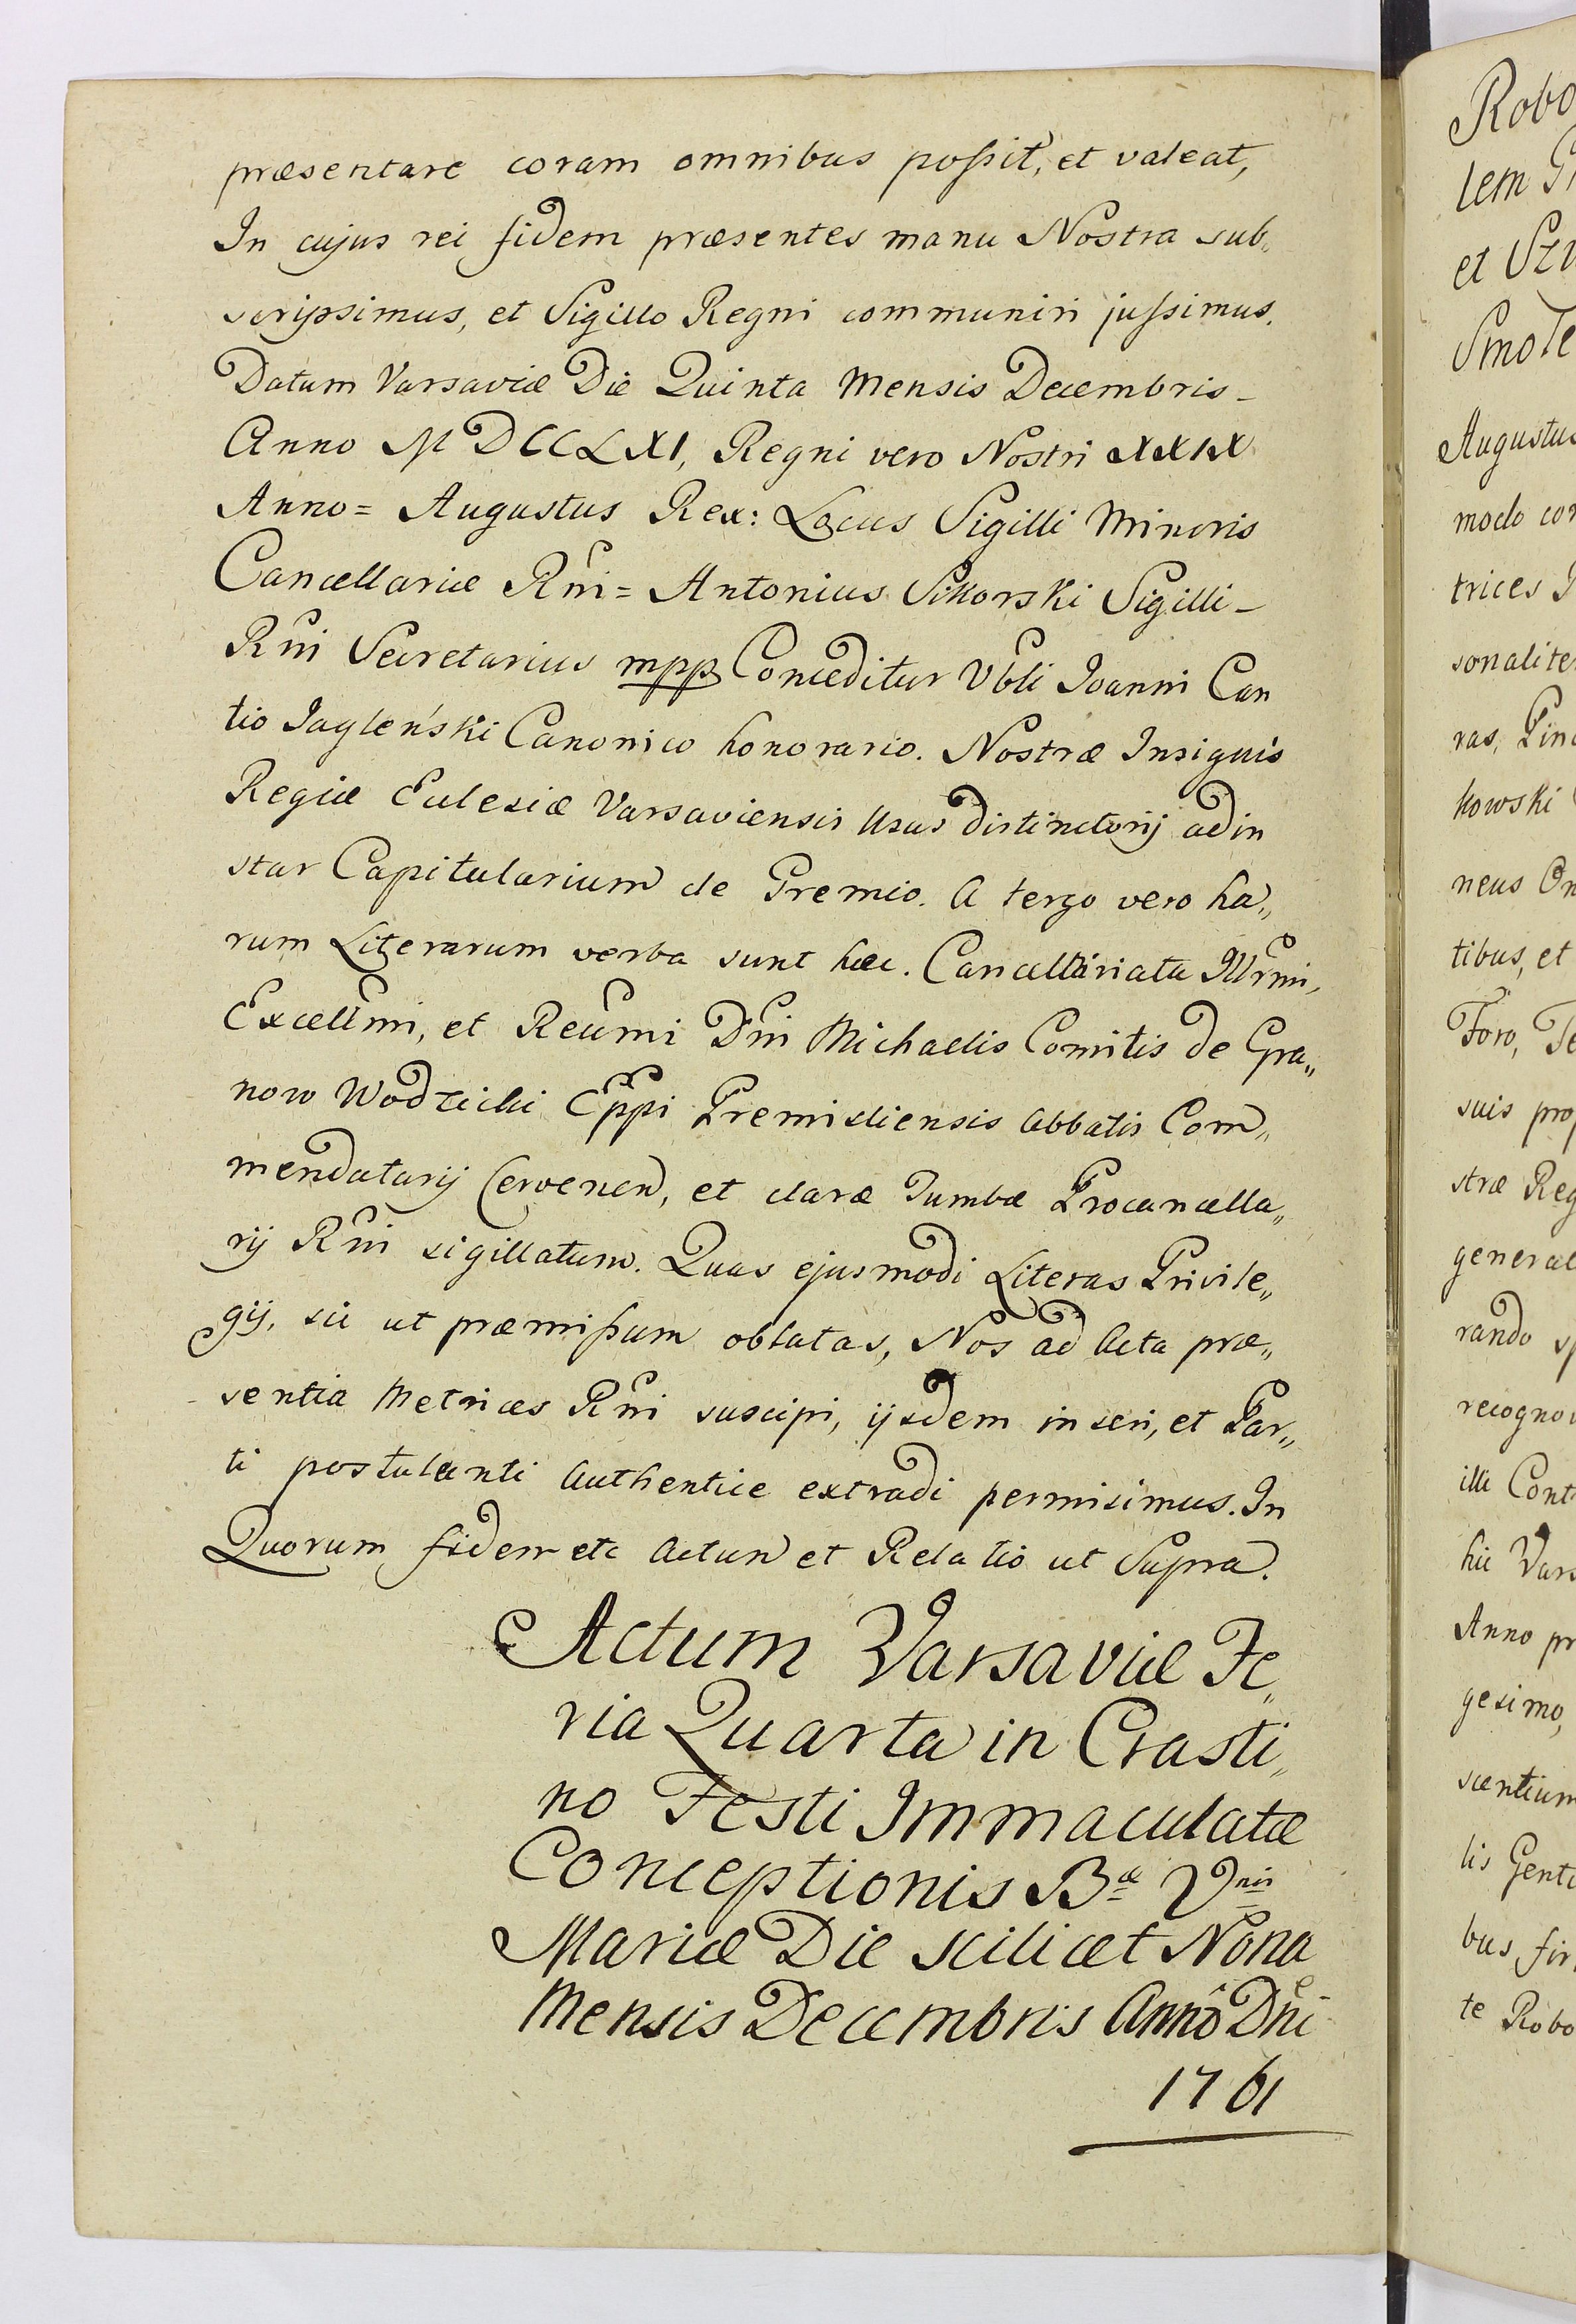 præsentare coram omnibus poſsit, et valeat,
In cujus rei fidem præsentes manu Nostra sub„
scripsimus, et Sigillo Regni communiri juſsimus.
Datum Varsaviæ Die Quinta Mensis Decembris
Anno MDCCLXI, Regni vero Nostri XXIX
Anno = Augustus Rex: Locus Sigilli Minoris
Cancellariæ Rni = Antonius Sikorski Sigilli
Rni Secretarius mpp Conceditur Vbli Joanni Can
tio Jagleński Canonico honorario. Nostræ Insignis
Regiæ Eclesiæ Varsaviensis Usus distinctorij ad in
star Capitularium de Gremio. A tergo vero ha„
rum Literarum verba sunt hæc. Cancellariatu Illrmi,
Excellmi, et Reumi Dni Michaelis Comitis de Gra„
now Wodzicki Eppi Premisliensis Abbatis Com„
mendatarij Cervenen, et claræ Tumbæ Procancella„
rij Rni sigillatum. Quas ejusmodi Literas Privile„
gij, sic ut præmiſsum oblatas, Nos ad Acta præ„
sentia Metrices Rni suscipi, ijsdem inseri, et Par„
ti postulanti Authentice extradi permisimus. In
Quorum fidem etc Actum et Relatio ut Supra.
Actum Varsaviæ Fe„
ria Quarta in Crasti„
no Festi Immaculatæ
Conceptionis Bæ Vnis
Mariæ Die scilicet Nona
Mensis Decembris Anno Dni
1761
Robo
tem
et
Smole
Augustus
modo con
trices
sonaliter
ras,
kowski
neus
tibus, et
Foro, Te
suis prop
stræ Reg
general
rando
recognov
illi Cont
hic Vars
Anno pr
gesimo,
scentium
lis Genti
bus fir
te Robo